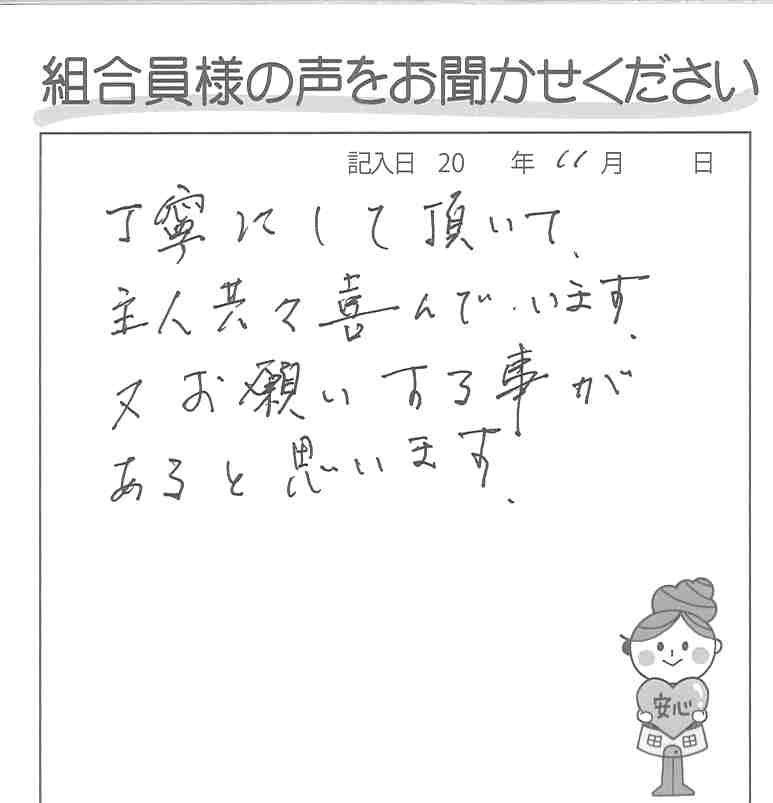 組合員様の声をお聞かせください
記入日 20 年 11 月 日
丁寧にして頂いて、
主人共々喜んでいます。
又お願いする事が
あると思います。
安心